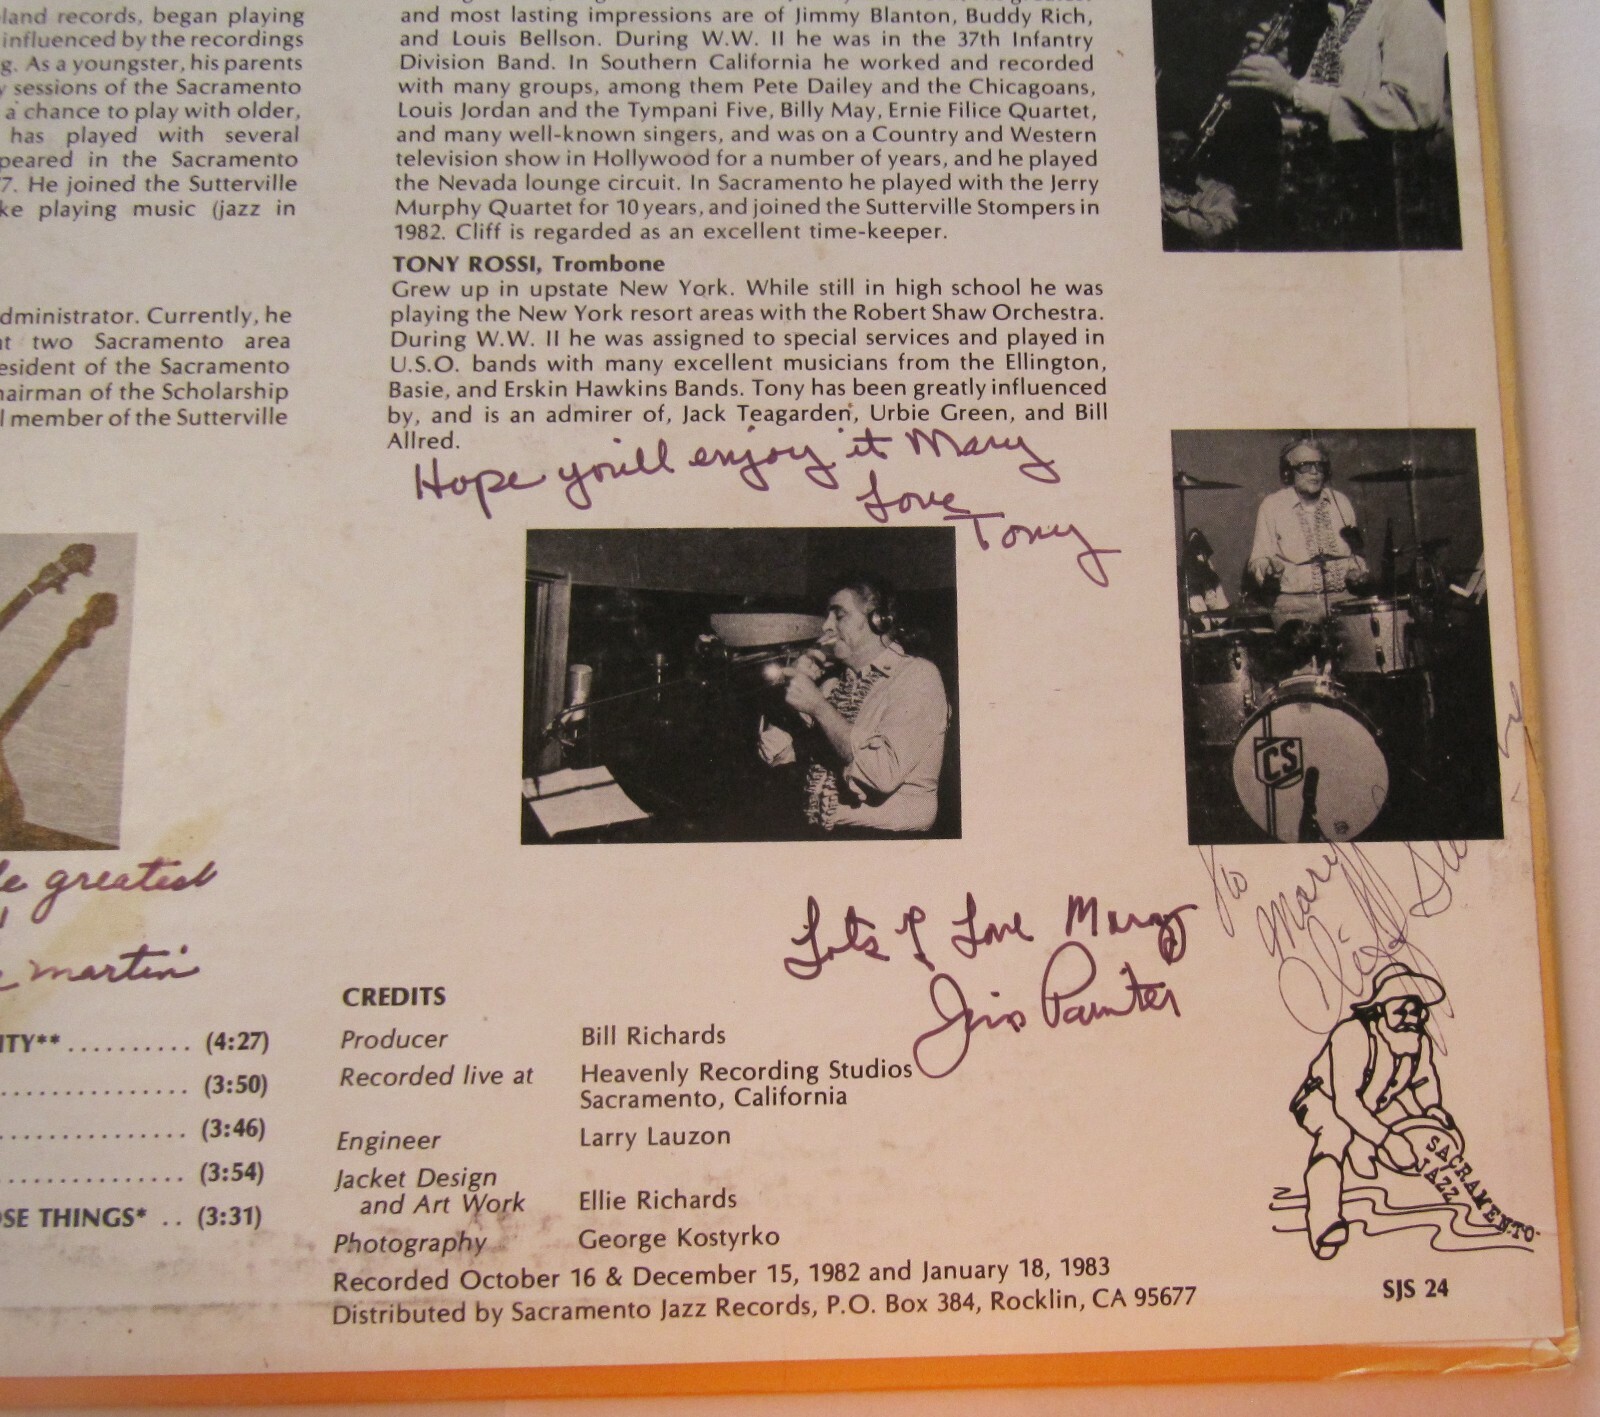 land records, began playing
influenced by the recordings
g. As a youngster, his parents
sessions of the Sacramento
a chance to play with older,
has played with several
peared in the Sacramento
7. He joined the Sutterville
ke playing music (jazz in
dministrator. Currently, he
at two Sacramento area
esident of the Sacramento
hairman of the Scholarship
l member of the Sutterville
and most lasting impressions are of Jimmy Blanton, Buddy Rich,
and Louis Bellson. During W.W. II he was in the 37th Infantry
Division Band. In Southern California he worked and recorded
with many groups, among them Pete Dailey and the Chicagoans,
Louis Jordan and the Tympani Five, Billy May, Ernie Filice Quartet,
and many well-known singers, and was on a Country and Western
television show in Hollywood for a number of years, and he played
the Nevada lounge circuit. In Sacramento he played with the Jerry
Murphy Quartet for 10 years, and joined the Sutterville Stompers in
1982. Cliff is regarded as an excellent time-keeper.
TONY ROSSI, Trombone
Grew up in upstate New York. While still in high school he was
playing the New York resort areas with the Robert Shaw Orchestra.
During W.W. II he was assigned to special services and played in
U.S.O. bands with many excellent musicians from the Ellington,
Basie, and Erskin Hawkins Bands. Tony has been greatly influenced
by, and is an admirer of, Jack Teagarden, Urbie Green, and Bill
Allred.
Hope you'll enjoy it Mary
Love
Tony
CS
greatest
martin
Lots of Love Mary
Jim Painter
To
Mary
Cliff
ITY** .......... (4:27)
................ (3:50)
................ (3:46)
................ (3:54)
OSE THINGS* .. (3:31)
CREDITS
Producer Bill Richards
Recorded live at Heavenly Recording Studios
Sacramento, California
Engineer Larry Lauzon
Jacket Design
and Art Work Ellie Richards
Photography George Kostyrko
Recorded October 16 & December 15, 1982 and January 18, 1983
Distributed by Sacramento Jazz Records, P.O. Box 384, Rocklin, CA 95677
SACRAMENTO
JAZZ
SJS 24